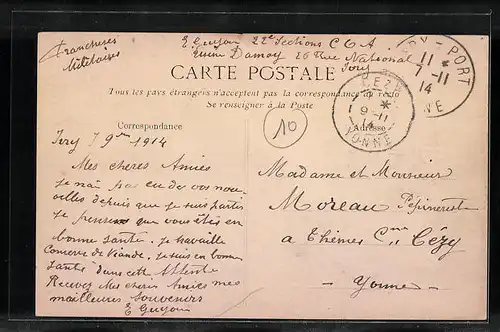 Franchises
Militaires
E Guyon 22e Sections C O A
Usine Damoy 26 Rue National
Ivry
CARTE POSTALE
Tous les pays étrangers n'acceptent pas la correspondance au recto
Se renseigner à la Poste
PORT
11
7-11
14
CÉZY
*
9-11
14
YONNE
10
Correspondance
Adresse
Ivry 7 9bre 1914
Mes cheres Amies
je n'ai pas eu de vos nou-
velles depuis que je suis partis
je pense que vous êtes en
bonne santé. je travaille
Conserve de Viande. je suis en bonne
Santé dans cette Attente
Recevez Mes cheres Amies mes
meilleures Souvenirs
E Guyon
Madame et Monsieur
Moreau Pépineriste
a Thèmes Cne Cézy
- Yonne -